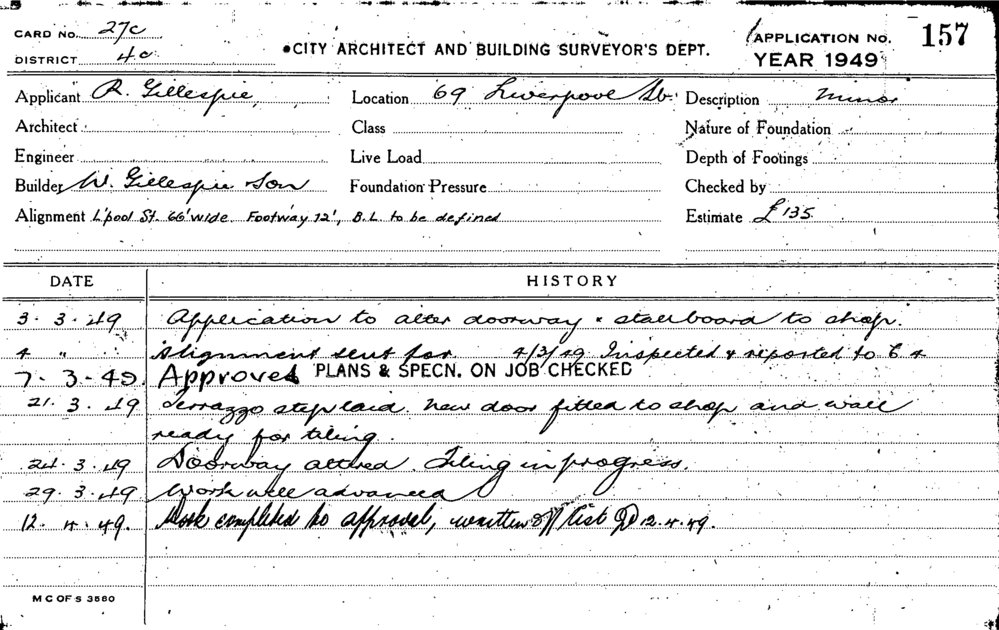 CARD NO. 27c
DISTRICT 4c
•CITY ARCHITECT AND BUILDING SURVEYOR'S DEPT.
APPLICATION NO. 157
YEAR 1949
Applicant R. Gillespie
Location 69 Liverpool St.
Description Minor
Architect
Class
Nature of Foundation
Engineer
Live Load
Depth of Footings
Builder W. Gillespie Son
Foundation Pressure
Checked by
Alignment L'pool St. 66' wide. Footway 12', B.L. to be defined
Estimate £135
DATE HISTORY
3.3.49 Application to alter doorway & stallboard to shop.
4 " Alignment sent for 4/3/49 Inspected & reported to
7.3.49. Approved PLANS & SPECN. ON JOB CHECKED
21.3.49 Terrazzo step laid. New door fitted to shop and wall
ready for tiling.
24.3.49 Doorway altered. Tiling in progress.
29.3.49 Work well advanced
12.4.49. Work completed to approval, written off list 12.4.49.
M C OF S 3560